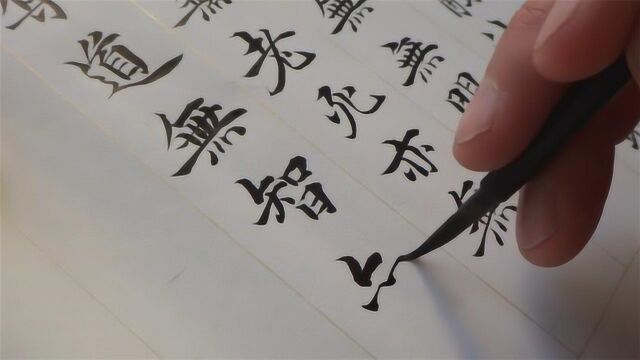 無無明
老死亦無
道無智